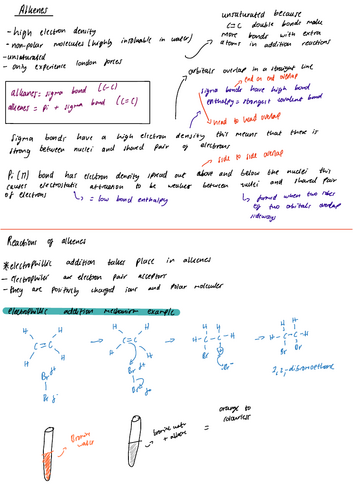 Alkenes
- high electron density
- non-polar molecules (highly insoluble in water)
- unsaturated
- only experience london forces
unsaturated because
C=C double bonds make
more bonds with extra
atoms in addition reactions
alkanes: sigma bond (C-C)
alkenes = Pi + sigma bond (C=C)
orbitals overlap in a straight line
end on end overlap
sigma bonds have high bond
enthalpy = strongest covalent bond
head to head overlap
Sigma bonds have a high electron density this means that there is
strong between nuclei and shared pair of electrons
side to side overlap
Pi (π) bond has electron density spread out above and below the nuclei this
causes electrostatic attraction to be weaker between nuclei and shared pair
of electrons
= low bond enthalpy
formed when two sides
of two orbitals overlap
sideways
Reactions of alkenes
*electrophilic addition takes place in alkenes
- electrophiles are electron pair acceptors
- they are positively charged ions and polar molecules
electrophilic addition mechanism example
H H
C=C
H H
Br δ+
Br δ-
H H
C=C
H H
Br δ+
Br δ-
H H
H-C-C-H
Br
:Br-
H H
H-C-C-H
Br Br
1,2,-dibromoethane
Bromine
water
bromine water
+ alkene
=
orange to
colourless